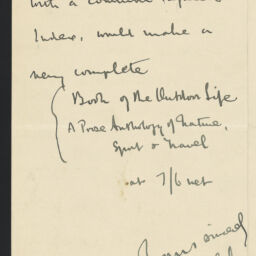 with a common
Index, would make a
very complete
Book of the Outdoor Life
A Prose Anthology of Nature,
Sport & Travel
at 7/6 net
Yours sincerely